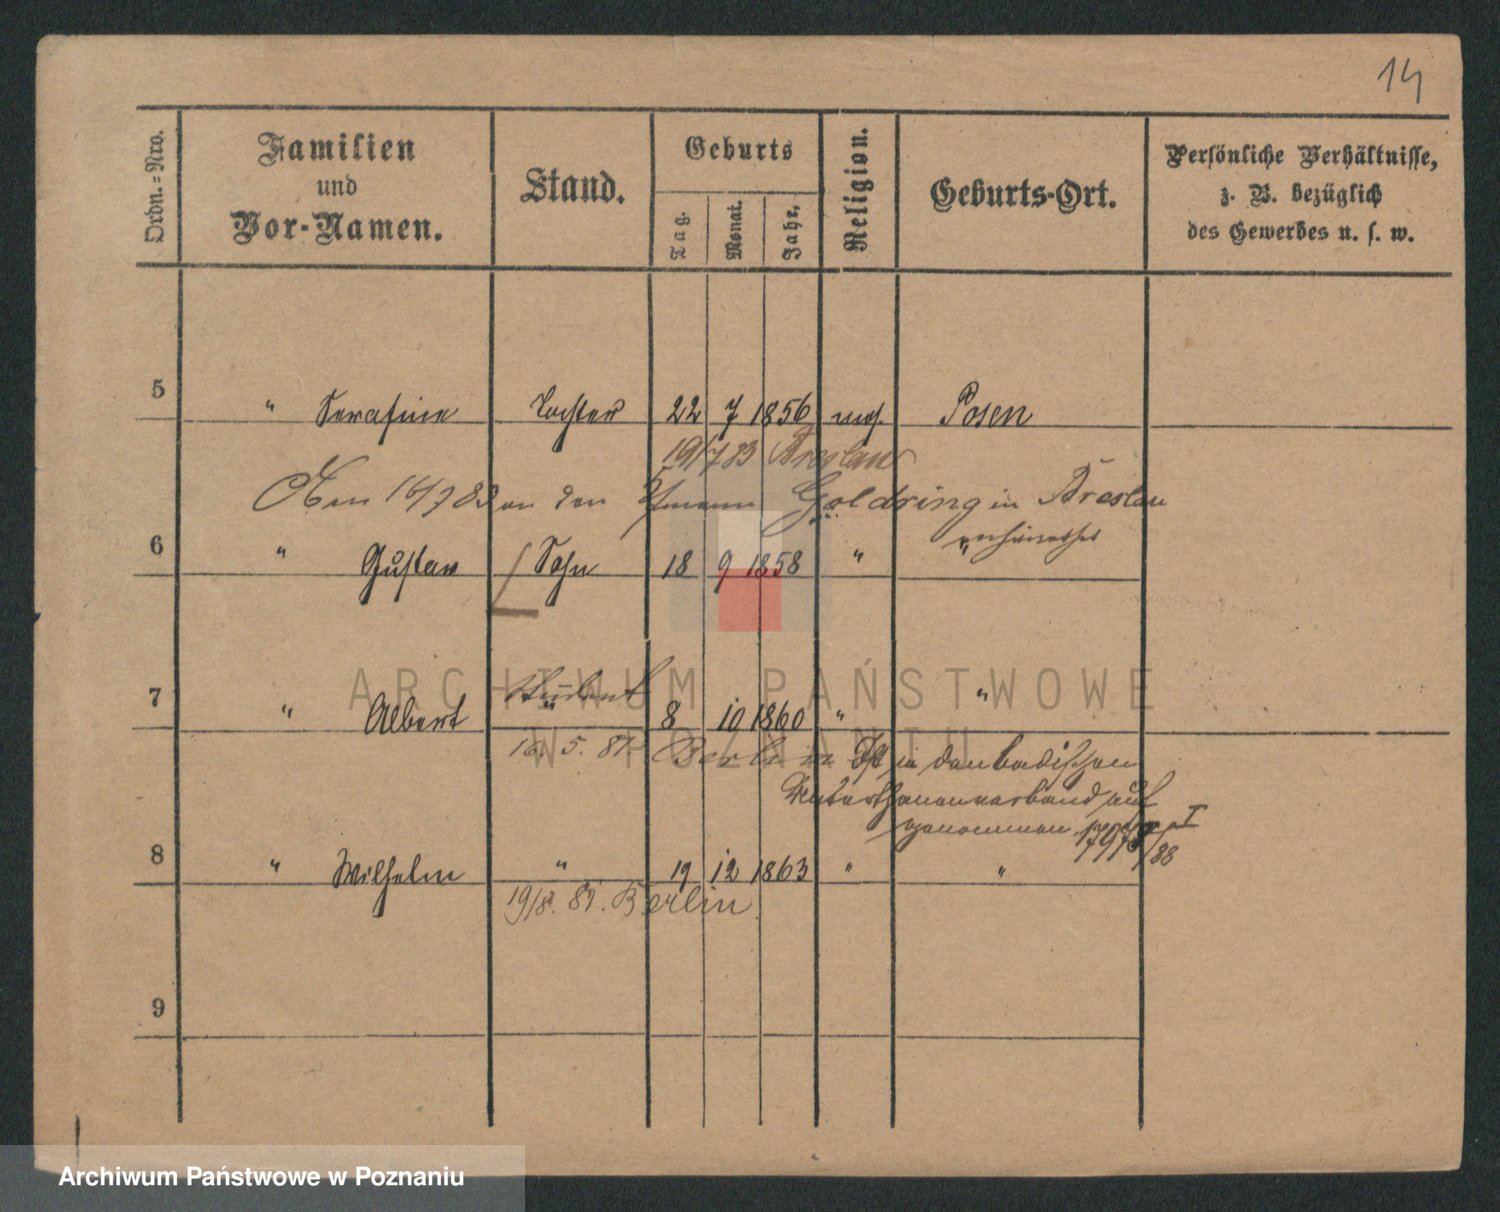 14
Ordn.-Nro.
Familien und Vor-Namen.
Stand.
Geburts
Tag.
Monat.
Jahr.
Religion.
Geburts-Ort.
Persönliche Verhältnisse,
z. B. bezüglich
des Gewerbes u. s. w.
5 " Serafine Tochter 22 7 1856 mos. Posen
19/7 83 Breslau
Am 16/7 83 an den Kfmann Goldring in Breslau
verheirathet
6 " Gustav Sohn 18 9 1858 " "
Student
7 " Albert " 8 10 1860 " "
16. 5. 81. Berlin Ist in den badischen
Unterthanenverband auf
genommen
/88
8 " Wilhelm " 19 12 1863 " "
19/8. 82. Berlin
9
ARCHIWUM PAŃSTWOWE
W POZNANIU
Archiwum Państwowe w Poznaniu